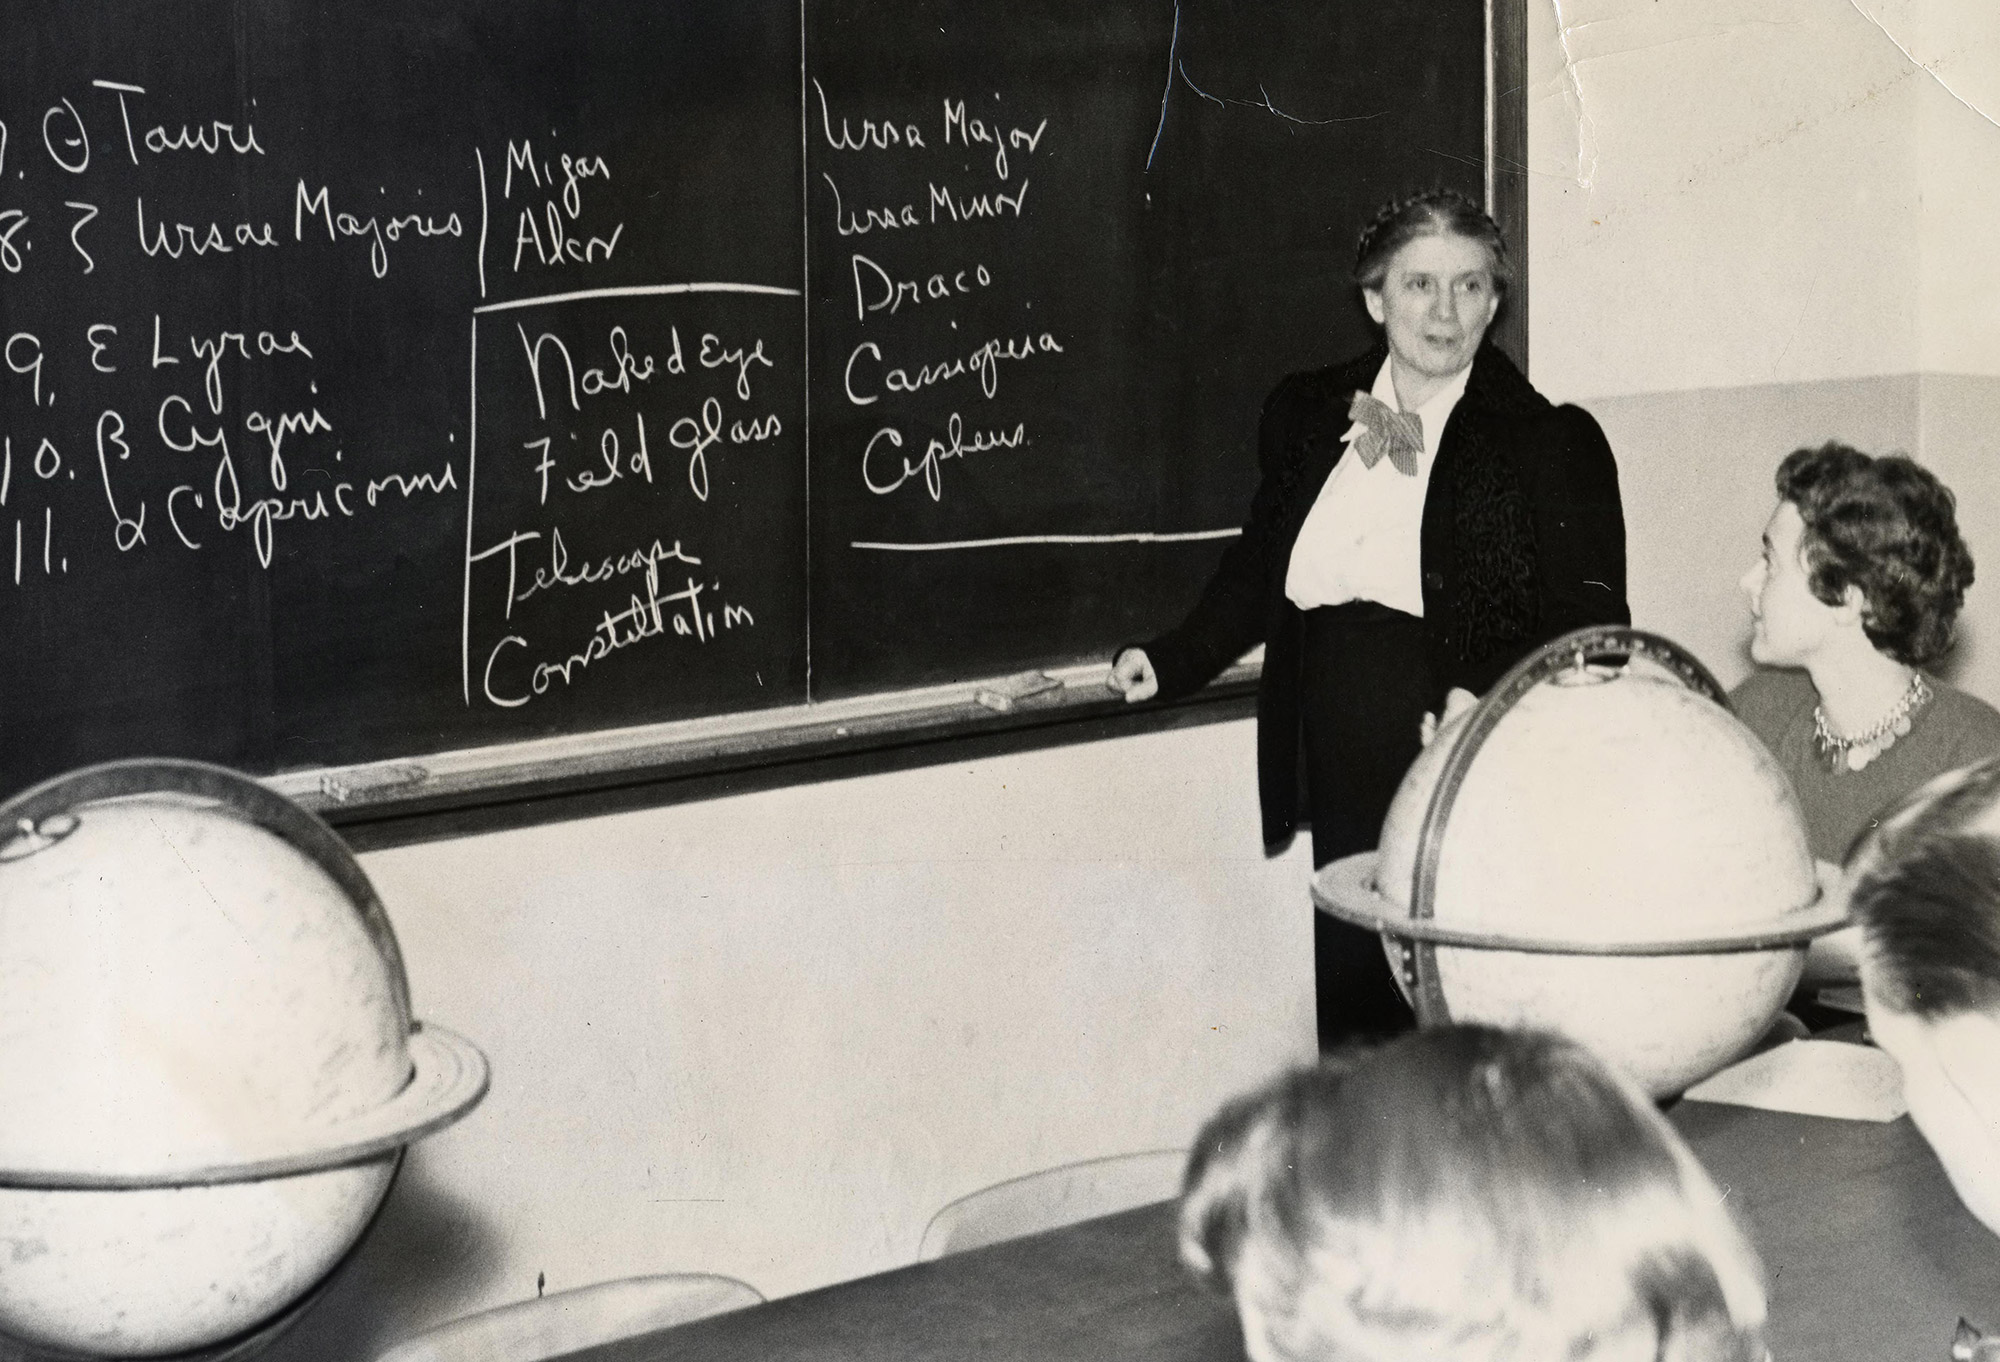 7. θ Tauri
8. ζ Ursae Majoris
9. ε Lyrae
10. β Cygni
11. α Capricorni
Mizar
Alcor
Naked Eye
Field glass
Telescope
Constellation
Ursa Major
Ursa Minor
Draco
Cassiopeia
Cepheus